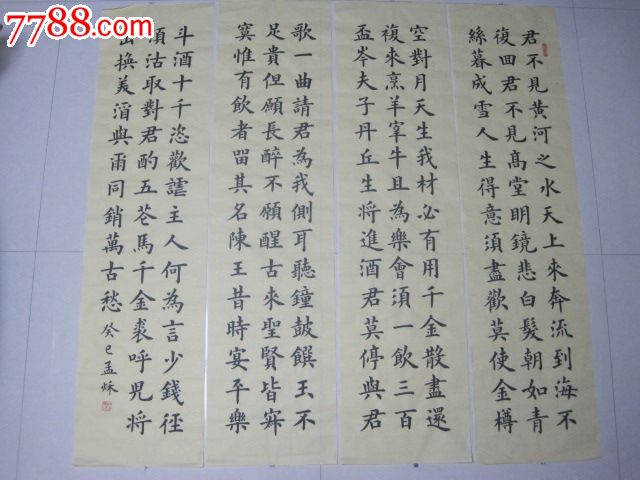 7788.com
中国收藏热线
君不見黃河之水天上來奔流到海不
復回君不見高堂明鏡悲白髮朝如青
絲暮成雪人生得意須盡歡莫使金樽
空對月天生我材必有用千金散盡還
複來烹羊宰牛且為樂會須一飲三百
盃岑夫子丹丘生將進酒君莫停與君
歌一曲請君為我側耳聽鐘鼓饌玉不
足貴但願長醉不願醒古來聖賢皆寂
寞惟有飲者留其名陳王昔時宴平樂
斗酒十千恣歡謔主人何為言少錢徑
須沽取對君酌五花馬千金裘呼兒將
出換美酒與爾同銷萬古愁
癸巳孟秋